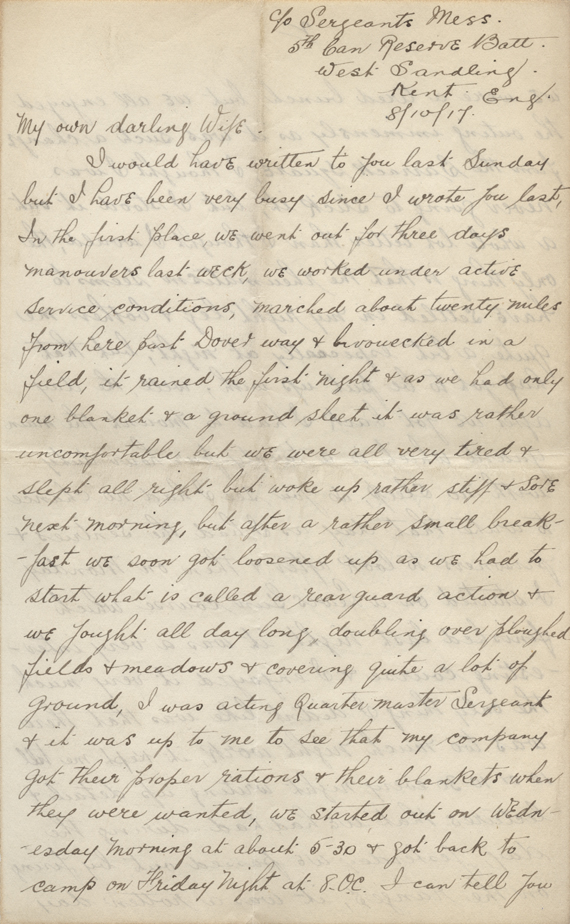 c/o Sergeants Mess.
5th Can Reserve Batt.
West Sandling.
Kent. Eng.
8/10/17.
My own darling Wife.
I would have written to you last Sunday
but I have been very busy since I wrote you last,
In the first place we went out for three days
manouvers last week, we worked under active
service conditions, marched about twenty miles
from here past Dover way & bivouecked in a
field, it rained the first night & as we had only
one blanket & a ground sheet it was rather
uncomfortable but we were all very tired &
slept all right but woke up rather stiff & sore
next morning, but after a rather small break-
-fast we soon got loosened up as we had to
start what is called a rear guard action &
we fought all day long doubling over ploughed
fields & meadows & covering quite a lot of
ground, I was acting Quarter master Sergeant
& it was up to me to see that my company
got their proper rations & their blankets when
they were wanted, we started out on Wedn-
-esday morning at about 5-30 & got back to
camp on Friday night at 8.OC. I can tell you